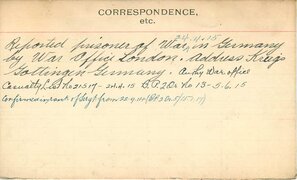 CORRESPONDENCE,
etc.
24.4.15
Reported prisoner of War, in Germany
by War Office London. Address Kriegs
Gottingen Germany. Auth War office
Casualty List No 21517 - 24.4.15 B.P.2. Or No 13 - 5.6.15
Confirmation of Sergt from 22.9.14